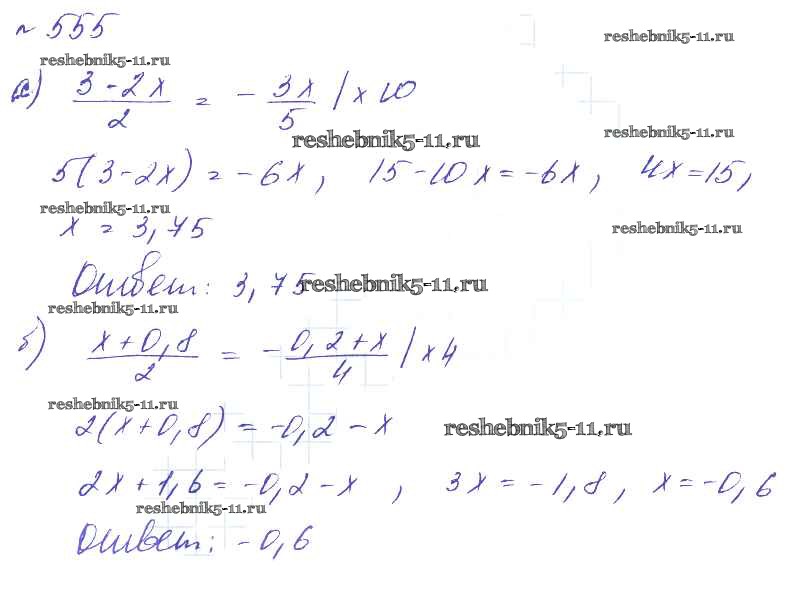 № 555
reshebnik5-11.ru reshebnik5-11.ru
а) (3-2x)/2 = - 3x/5 | x 10
reshebnik5-11.ru reshebnik5-11.ru
5(3-2x) = -6x, 15-10x = -6x, 4x=15,
reshebnik5-11.ru reshebnik5-11.ru
x = 3,75
Ответ: 3,75
reshebnik5-11.ru
reshebnik5-11.ru
б) (x+0,8)/2 = - (0,2+x)/4 | x 4
reshebnik5-11.ru
2(x+0,8) = -0,2-x
reshebnik5-11.ru
2x+1,6 = -0,2-x, 3x = -1,8, x = -0,6
reshebnik5-11.ru
Ответ: -0,6